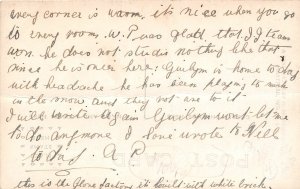 every corner is warm, it's nice when you go
to every room, W. P was glad that J.J. team
won. he does not studie nothing like that
since he is over here. Guilym is home to day
with headache he has been playing to much
in the snow, and they not use to it.
I will write again Guilym wont let me
to do anymore I have wrote to Hill
to day. A P.
this is the Glove factory its built with white brick.
POST CARD